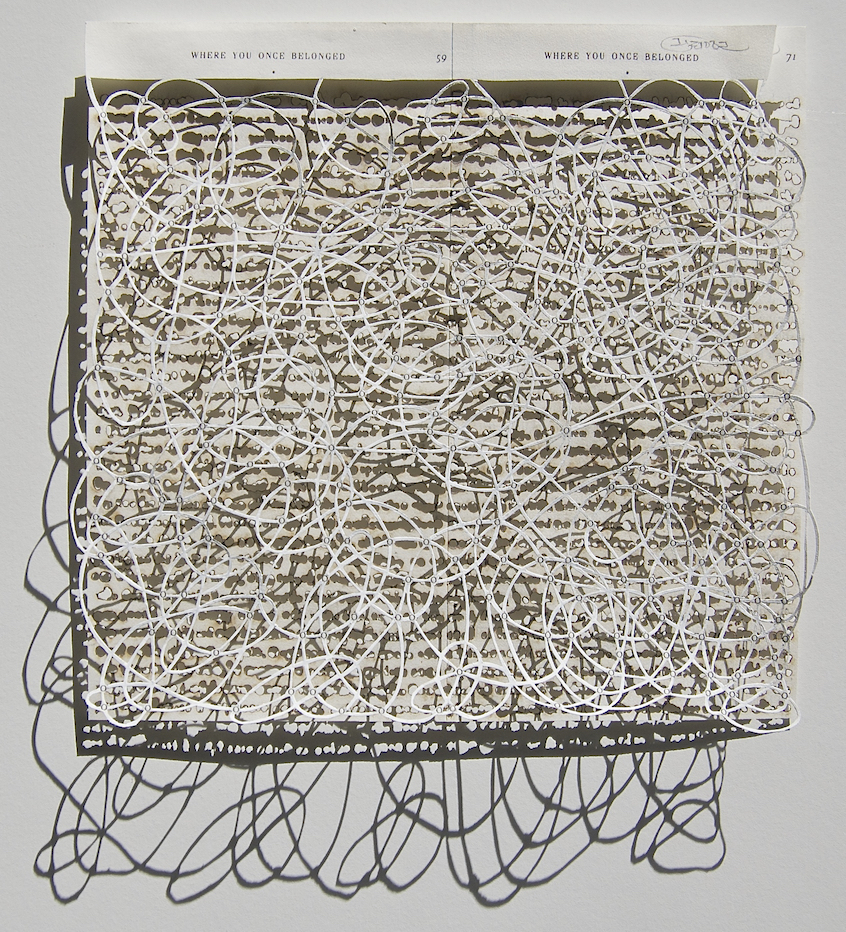 WHERE YOU ONCE BELONGED 59 WHERE YOU ONCE BELONGED 71